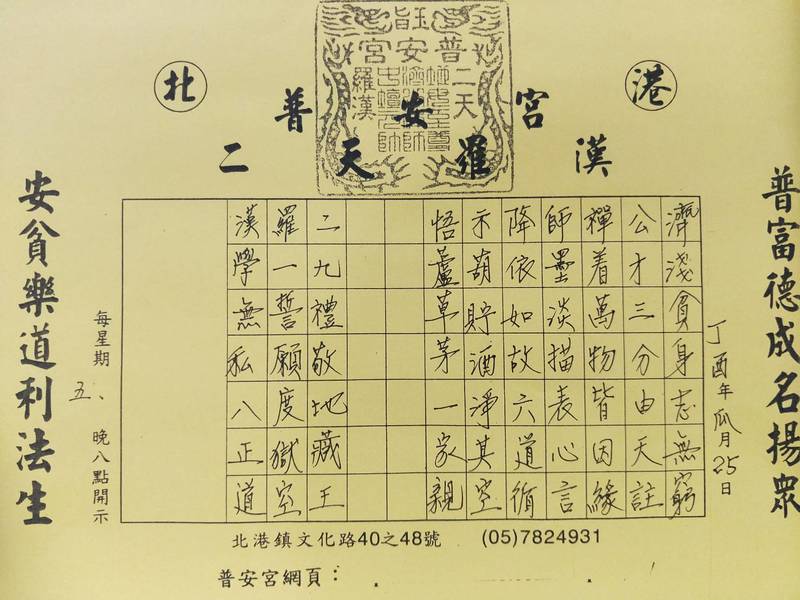 北 港
玉旨
普安宮
二天
羅漢
普安宮
二天羅漢
普富德成名揚眾
丁酉年瓜月25日
濟淺貧身志無窮
公才三分由天註
禪着萬物皆因緣
師墨淡描表心言
降依如故六道循
示葫貯酒淨其空
悟蘆草茅一家親
二九禮敬地藏王
羅一誓願度獄空
漢學無私八正道
每星期五、晚八點開示
安貧樂道利法生
北港鎮文化路40之48號 (05)7824931
普安宮網頁：